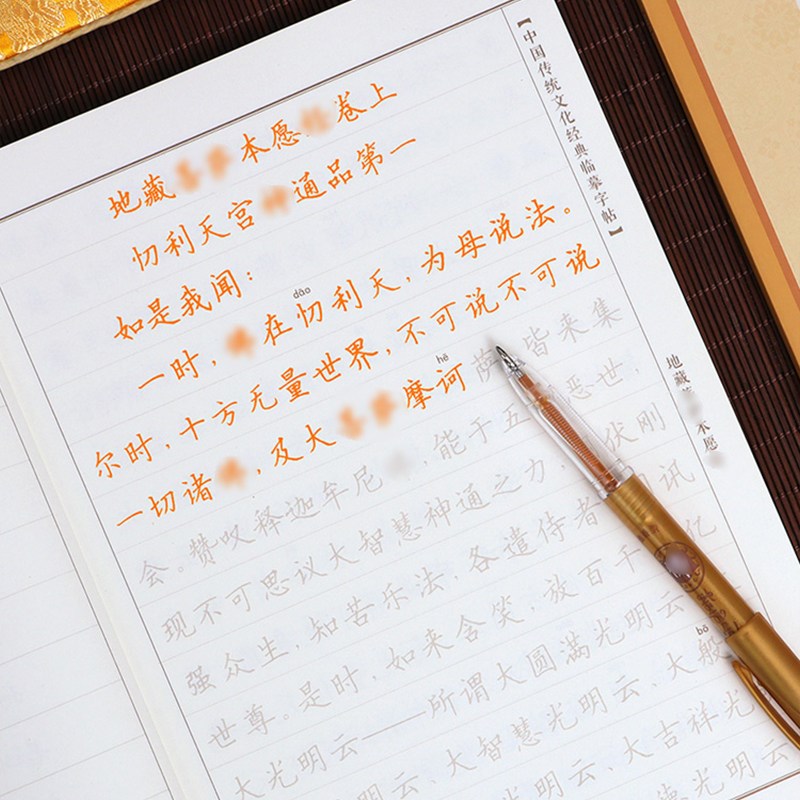 【中国传统文化经典临摹字帖】
地藏本愿
地藏本愿卷上
忉利天宫通品第一
如是我闻:
dāo
一时,在忉利天,为母说法。
尔时,十方无量世界,不可说不可说
hē
一切诸,及大摩诃萨,皆来集
会。赞叹释迦牟尼,能于五恶世,
现不可思议大智慧神通之力,伏刚
强众生,知苦乐法,各遣侍者,讯
世尊。是时,如来含笑,放百千亿
大光明云——所谓大圆满光明云、
bō
明云、大智慧光明云、大般
明云、大吉祥光
德光明